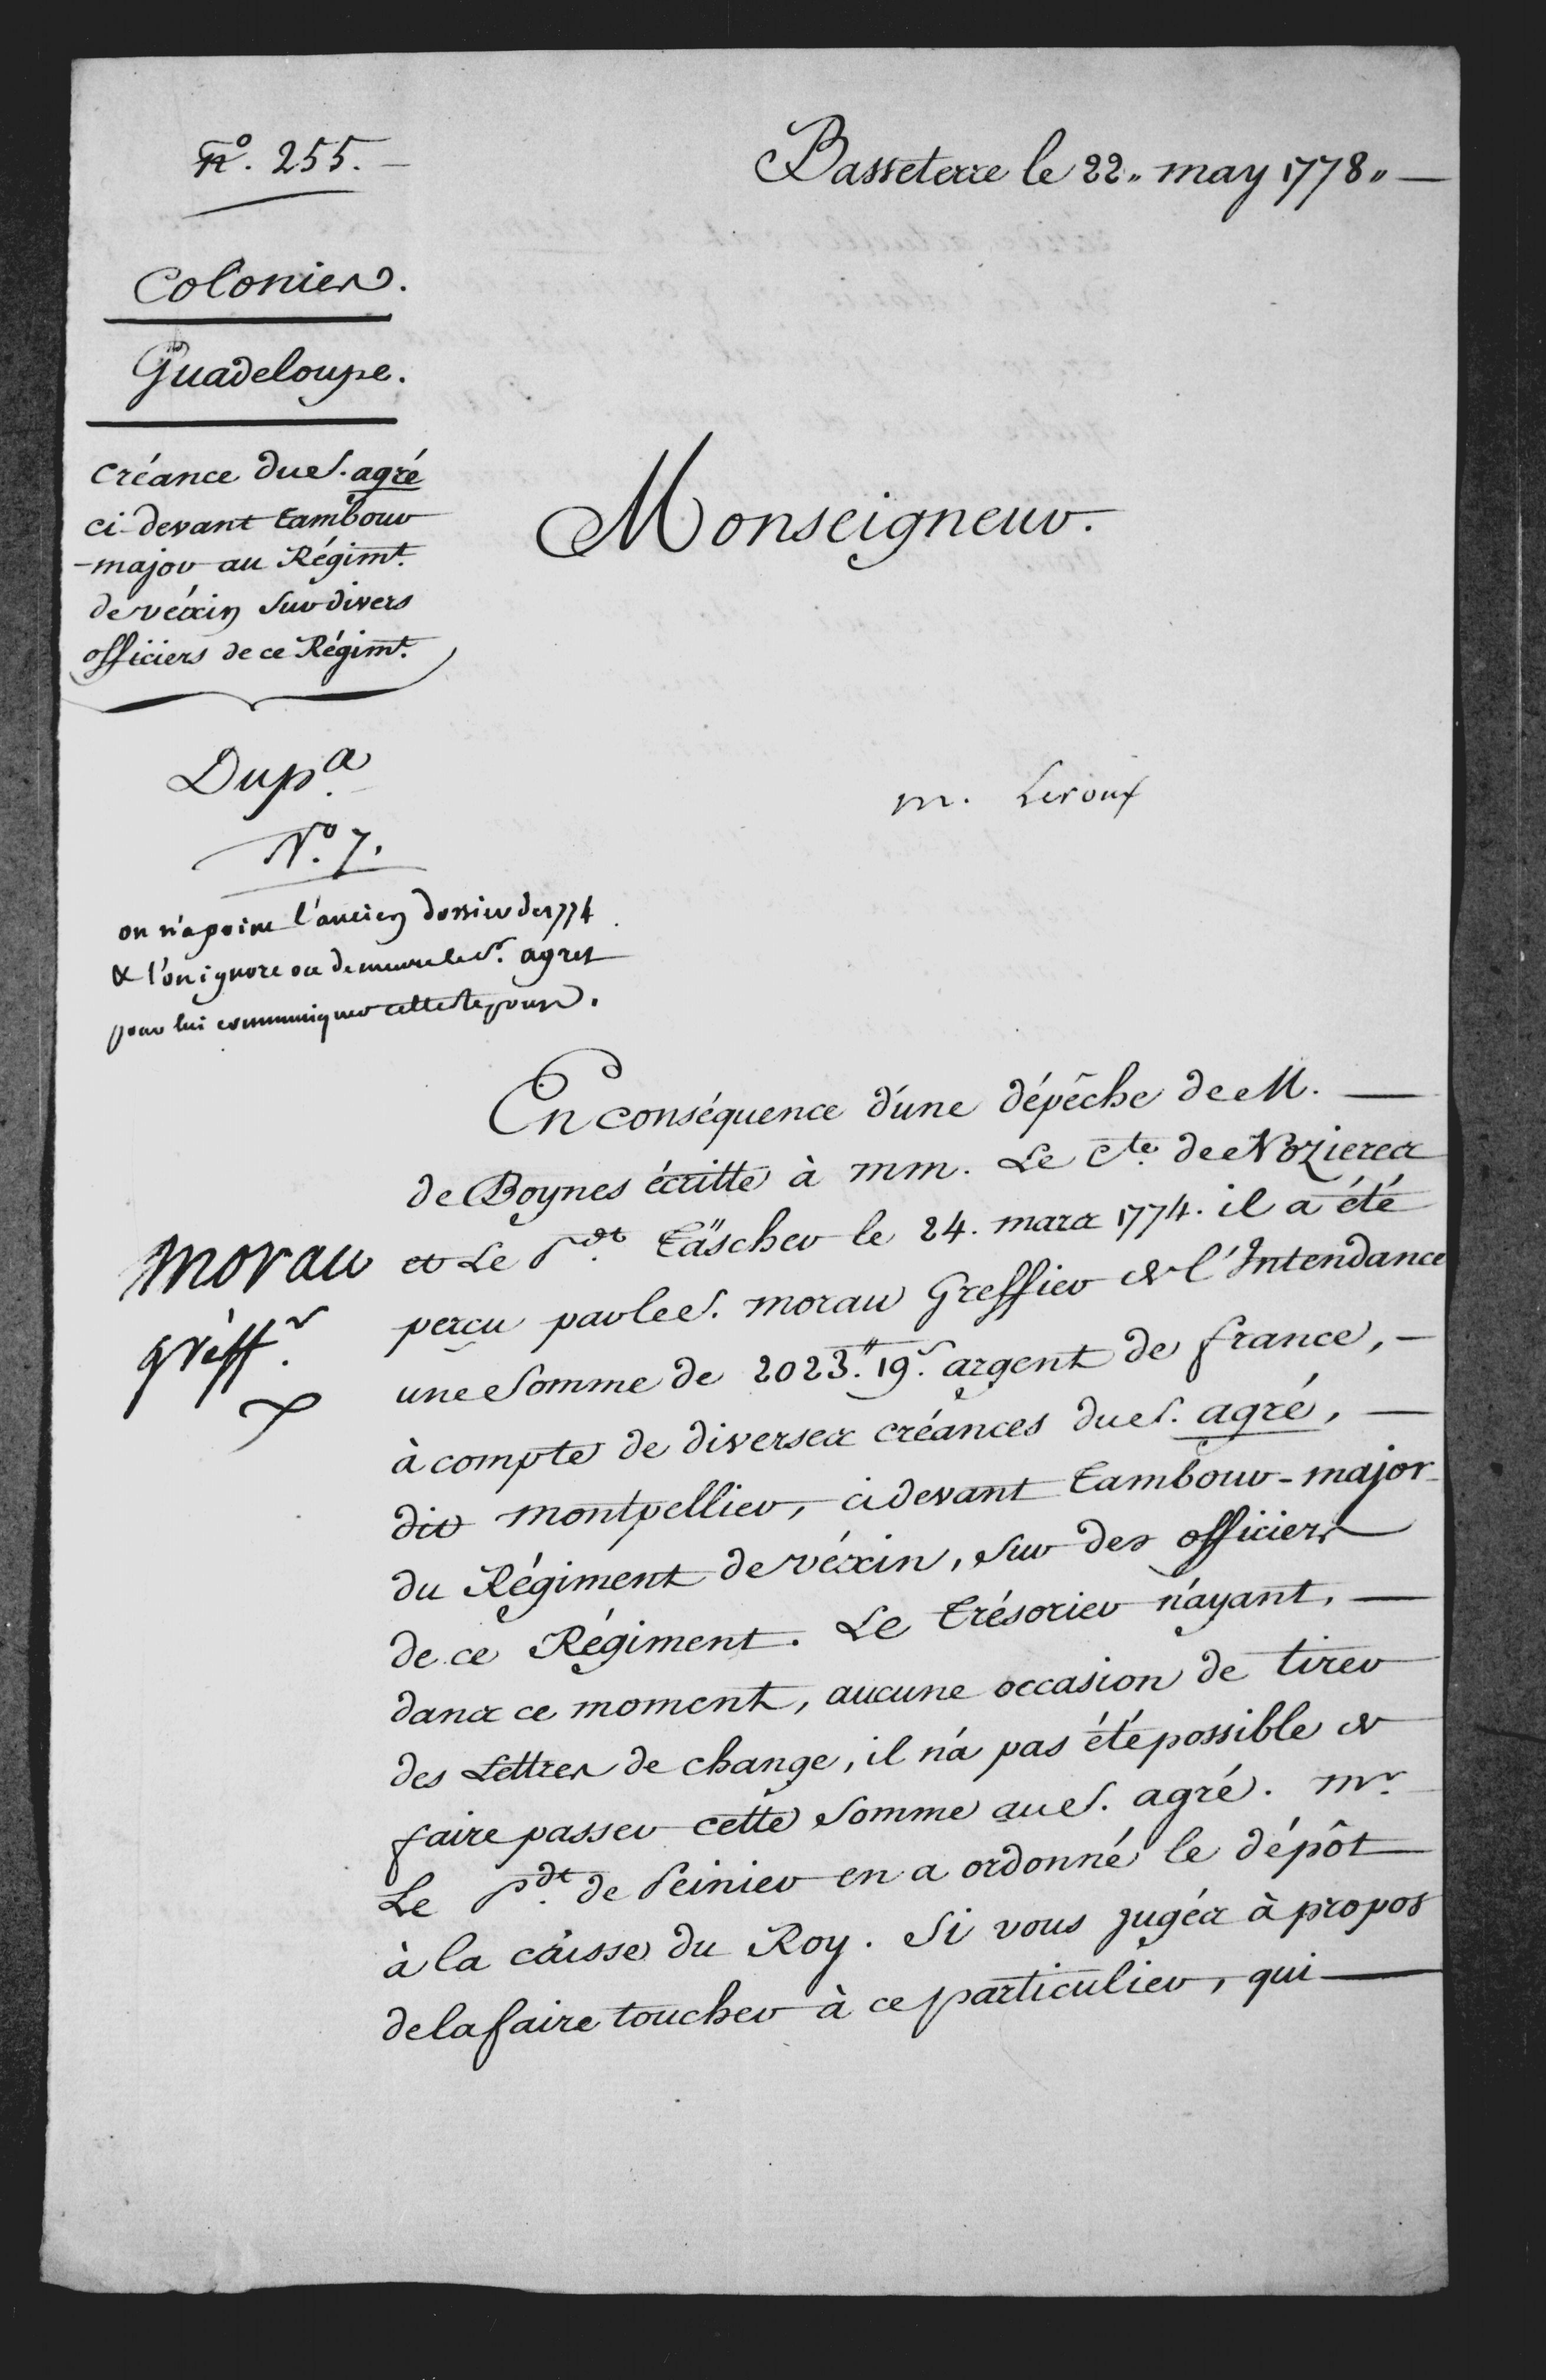 N.° 255.
Basseterre le 22. may 1778.
Colonies.
Guadeloupe.
Créance du S. agré
ci-devant tambour
-major au Régimt.
de véxin sur divers
officiers de ce Régimt.
Monseigneur.
Dup.a
N.° 7.
m. Leroux
on n'a point l'ancien dossier de 1774
& l'on ignore ou demeure le Sr. agret
pour lui communiquer cette Réponse.
Morau
greffr.
En conséquence d'une dépêche de M.
de Boynes écritte à mm. Le Cte. de Nozieres
et Le Pdt. Täscher le 24. mars 1774. il a été
perçu par le S. morau Greffier de l'Intendance
une Somme de 2023.tt 19.s argent de france,
à compte de diverses créances du S. agré,
dit montpellier, cidevant tambour-major
du Régiment de véxin, sur des officiers
de ce Régiment. Le trésorier n'ayant,
dans ce moment, aucune occasion de tirer
des Lettres de change, il n'a pas été possible de
faire passer cette Somme au S. agré. Mr.
Le Pdt. de Peinier en a ordonné le dépôt
à la caisse du Roy. Si vous jugés à propos
de la faire toucher à ce particulier, qui